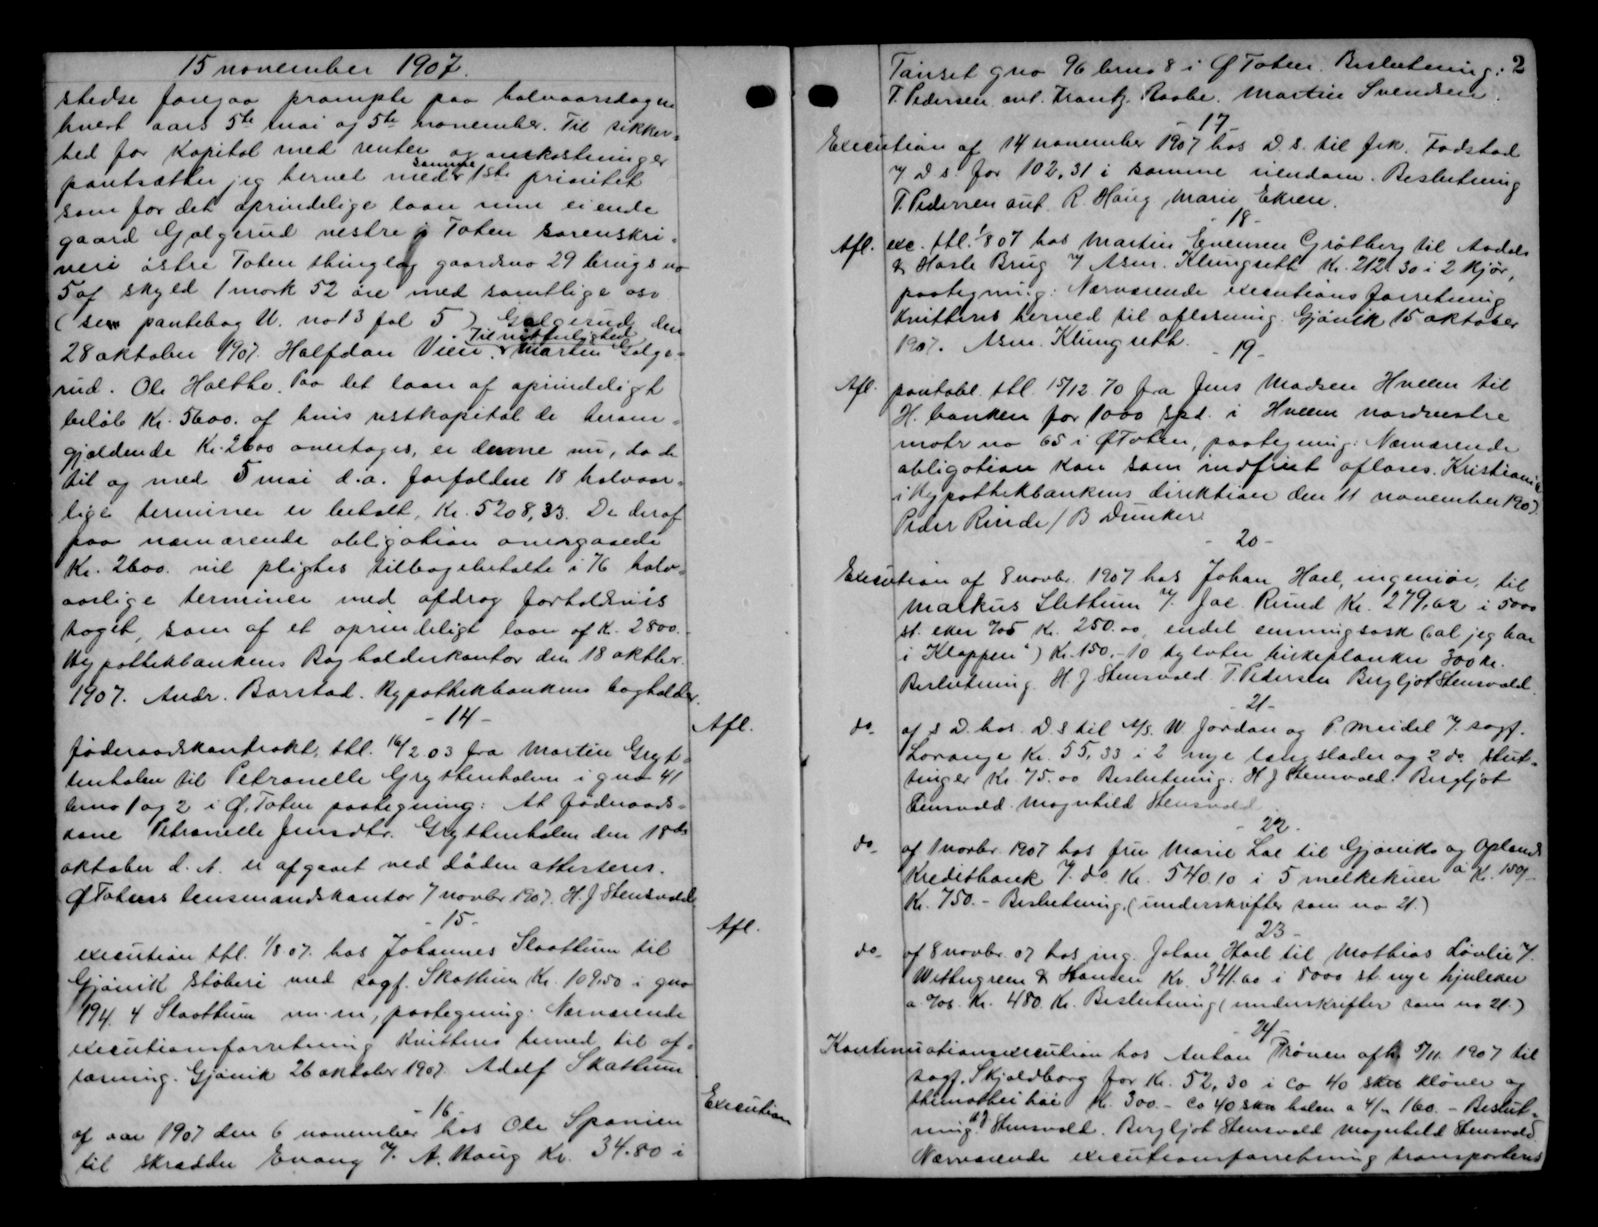 15 november 1907.
stedse foregaa prompte paa halvaarsdagene
hvert aars 5te mai og 5te november. Til sikker-
hed for Kapital med renter og omkostninger
pantsætter jeg herved med samme 1ste prioritet
som for det oprindelige laan min eiende
gaard Galgerud vestre i Toten sorenskri-
veri østre Toten thinglag gaardsno 29 brugsno
5 af skyld 1 mark 52 øre med samtlige osv
(se pantebog U. no 13 fol 5) Galgerud den
28 oktober 1907. Halfdan Til vitterlighed Martin Golge-
rud. Ole Holthe. Paa det laan af oprindeligt
beløb Kr. 5600. af hvis restkapital de heraf
gjældende Kr. 2600 overtages, er denne nu, da de
til og med 5 mai d.a. forfaldne 18 halvaar-
lige terminer er betalt, Kr. 5208,33. De deraf
paa nærværende obligation overgaaede
Kr. 2600. vil pligtes tilbagebetalte i 76 halv-
aarlige terminer med afdrag forholdsvis
taget, som af et oprindeligt laan af K. 2800.
Hypothekbankens Bogholderkontor den 18 oktbr.
1907. Andr. Barstad. Hypothekbankens bogholder.
- 14 -
Afl.
føderaadskontrakt, thl. 16/2 03 fra Martin Gryt-
tenholen til Petronelle Gryttenholen i gno 41
brno 1 og 2 i Ø. Toten paategning: At føderaads-
kone Petronelle Jensdtr. Gryttenholen den 18de
oktober d. A. er afgaaet ved døden attesteres.
Ø Totens lensmandskontor 7 novbr 1907. H. J Stensvold
- 15 -
Afl.
execution thl. 1/8 07. hos Johannes Slaathun til
Gjøvik støberi ved sagf. Skattum Kr. 109,50 i gno
194. 4 Slaattum m.m, paategning. Nærværende
executionsforretning kvitteres herved til af-
læsning. Gjøvik 26 oktober 1907 Adolf Skattum
- 16 -
Execution
af aar 1907 den 6 november hos Ole Spanien
til skrædder Enang v/. A. Haug Kr. 34.80 i
2
Tanset gno 96 brno 8 i Ø Toten. Beslutning:
T. Pedersen aut. Frantz Raabe. Martin Svendsen.
- 17 -
Execution af 14 november 1907 hos D. s. til frk. Fodstad
v/ D s. for 102,31 i samme eiendom. Beslutning
T. Pedersen aut. R. Haug Marie Ekren.
- 18 -
Afl. exc. thl. 1/8 07 hos Martin Evensen Grøtberg til Aadals
& Hasle Brug v/ Asm. Klungseth Kr. 212.30 i 2 Kjør,
paategning: Nærværende executionsforretning
kvitteres herved til aflæsning. Gjøvik 15 oktober
1907. Asm. Klungseth.
- 19 -
Afl. pantobl. thl. 15/12. 70 fra Jens Madsen Hveem til
H. banken for 1000 spd. i Hveem nordvestre
matr no 65 i Ø Toten, paategning: Nærværende
obligation kan som indfriet aflæses. Kristiania
i Hypothekbankens direktion den 11 november 1907.
Peder Rinde / B Dunker
- 20 -
Execution af 8 novbr. 1907 hos Johan Hoel, ingeniør, til
Markus Slettum v/. Jac. Rund Kr. 279,62 i 5000
st. eker Kr. 250.00, endel
i Klappen") Kr. 150.- 10 tylvter birkeplanker 300 kr.
Beslutning. H J Stensvold T. Pedersen Bergljot Stensvold.
- 21 -
do. af s D. hos. D. s til A/S. W. Jordan og P. Meidel v/. sagf.
Lorange Kr. 55,33 i 2 nye langslæder og 2 do stut-
tinger Kr. 75.00 Beslutning: H J Stensvold. Bergljot
Stensvold. Magnhild Stensvold.
- 22 -
do. af 1 novbr. 1907 hos fru Marie Lae til Gjøviks og Oplands
Kreditbank v/. do. Kr. 540,10 i 5 melkekuer a Kr. 150/-
Kr. 750.- Beslutning. (underskrifter som no 21.)
- 23 -
do. af 8 novbr. 07 hos ing. Johan Hoel til Mathias Løvlie v/.
Wettergreen & Hansen Kr. 341.60 i 8000 st. nye hjuleker
Kr. 480. Kr. Beslutning (underskrifter som no 21.)
- 24 -
Kontinuationsexecution hos Anton Prøven afh. 5/11. 1907 til
sagf. Skjoldborg for Kr. 52,30 i ca 40 skr kløver og
thimothei høi Kr. 300.- ca 40 skr halm a 4/- 160.- Beslut-
ning. HJ Stensvold. Bergljot Stensvold Magnhild Stensvold
Nærværende executionsforretning transporteres